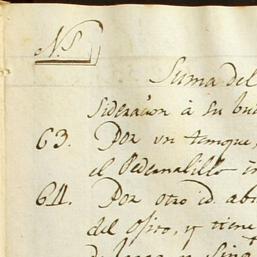 N.5
Suma del
sideracion à su bue
63. Por un tanque,
el Pedernalillo in
64. Por otro id. abi
del Osiro, y tiene